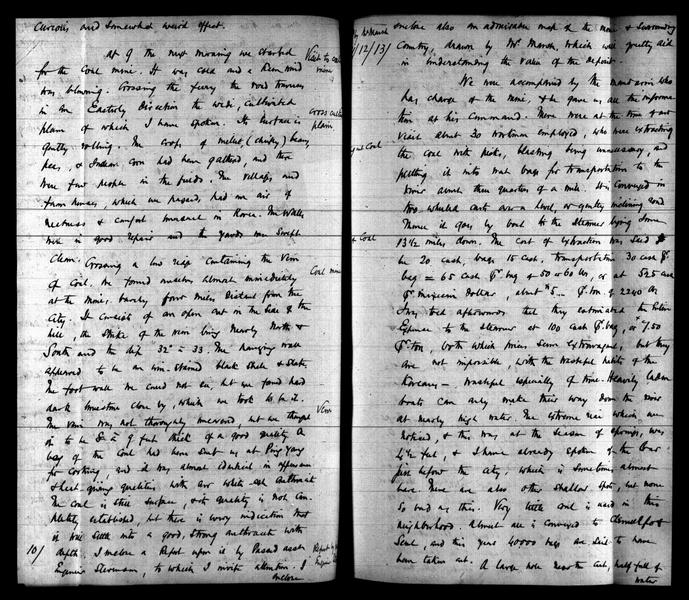 curious and somewhat weird effect.
At 9 the next morning we started
for the Coal mine. It was cold and a keen wind
was blowing. Crossing the ferry the road traverses
in an Easterly direction the wide, cultivated
plain of which I have spoken. Its surface is
gently rolling. The crops of millet, (chiefly) beans,
peas, & Indian corn had been gathered, and there
were few people in the fields. The villages and
farm houses, which we passed, had an air of
neatness & comfort unusual in Korea. The walls
were in good repair and the yards were swept
clean. Crossing a low ridge containing the vein
of Coal, we found ourselves almost immediately
at the mine, barely four miles distant from the
City. It consists of an open cut in the side of the
hill, the strike of the vein being nearly North &
South and the dip 32° = 33. The hanging wall
appeared to be an iron-stained black shale & slate.
The foot wall we could not see, but we found hard
dark limestone close by, which we took to be it.
The vein was not thoroughly uncovered, but we thought
it to be 8 = 9 feet thick of a good quality. A
bag of the Coal had been sent us at Ping Yang
for cooking, and it was almost identical in appearance
& heat giving qualities with our white ash Anthracite
The coal is still surface, & its quality is not com-
pletely established, but there is every indication that
it will settle into a good, strong anthracite with
depth. I enclose a Report upon it by Passed asst
Engineer Sherman, to which I invite attention. I
enclose
Visit to coal
mine
Cross
plain
Coal mine
Vein
10/
Report by
Engineer
enclose also an admirable map of the mine & surrounding
Country, drawn by Mr. Marsh, which will greatly aid
in understanding the value of the deposit.
We were accompanied by the mandarin who
has charge of the mine, & he gave us all the informa-
tion at his command. There were at the time of our
visit about 30 workmen employed, who were extracting
the coal with picks, blasting being unnecessary, and
putting it into mat bags for transportation to the
river about three quarters of a mile. It is conveyed in
two wheeled carts over a level, or gently inclining road
Thence it goes by boat to the steamer lying some
13½ miles down. The cost of extraction was said to
be 20 cash, bags 15 cash, transportation 30 cash pr
bag = 65 cash pr bag of 50 or 60 lbs, or at 525 cash
pr Mexican Dollar, about $5 – pr ton of 2240 lbs
They told afterwards that they estimated the entire
Expense to the steamer at 100 cash pr bag, or $7.50
pr ton, both which prices seem extravagant, but they
are not impossible, with the wasteful habits of the
Koreans – wasteful especially of time. Heavily laden
boats can only make their way down the river
at nearly high water. The extreme rise which we
noticed, & this was at the season of springs, was
4½ feet, & I have already spoken of the bar
just before the city, which is sometimes almost
bare. There are also other shallow spots, but none
so bad as this. Very little coal is used in this
neighborhood. Almost all is conveyed to Chemulpo &
Seoul, and this year 40000 bags are said to have
been taken out. A large hole near the cut, half full of
water
12/13/
Coal
& Coal